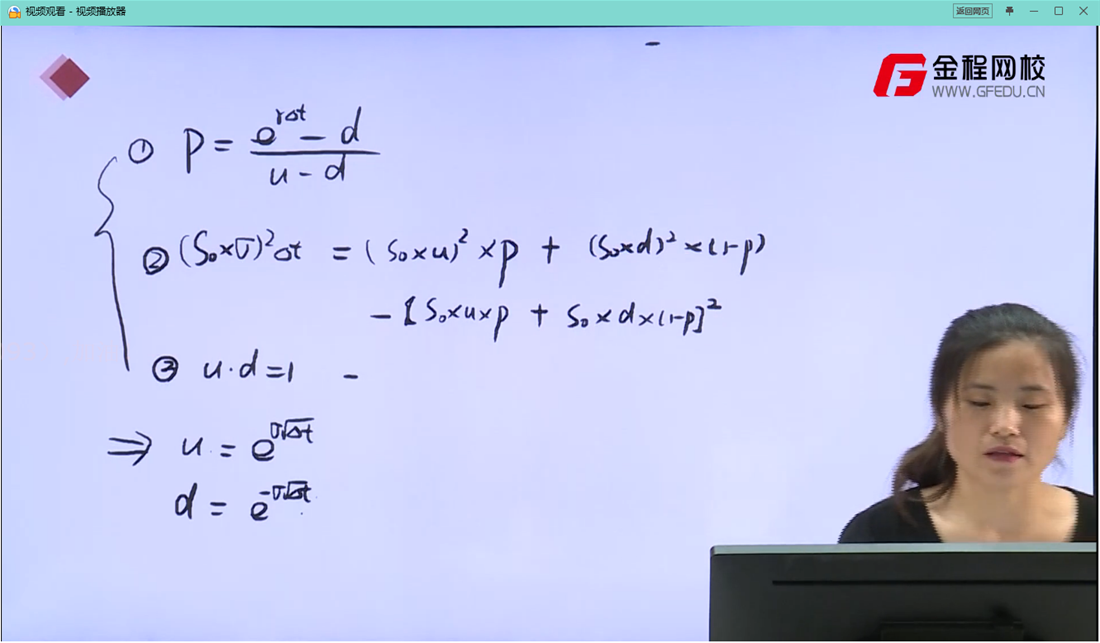 视频观看 - 视频播放器
返回网页
金程网校
WWW.GFEDU.CN
① p = (e^{rΔt} - d) / (u - d)
② (S₀×σ)²Δt = (S₀×u)²×p + (S₀×d)²×(1-p)
- [S₀×u×p + S₀×d×(1-p)]²
③ u·d=1
⇒ u = e^{σ√Δt}
d = e^{-σ√Δt}